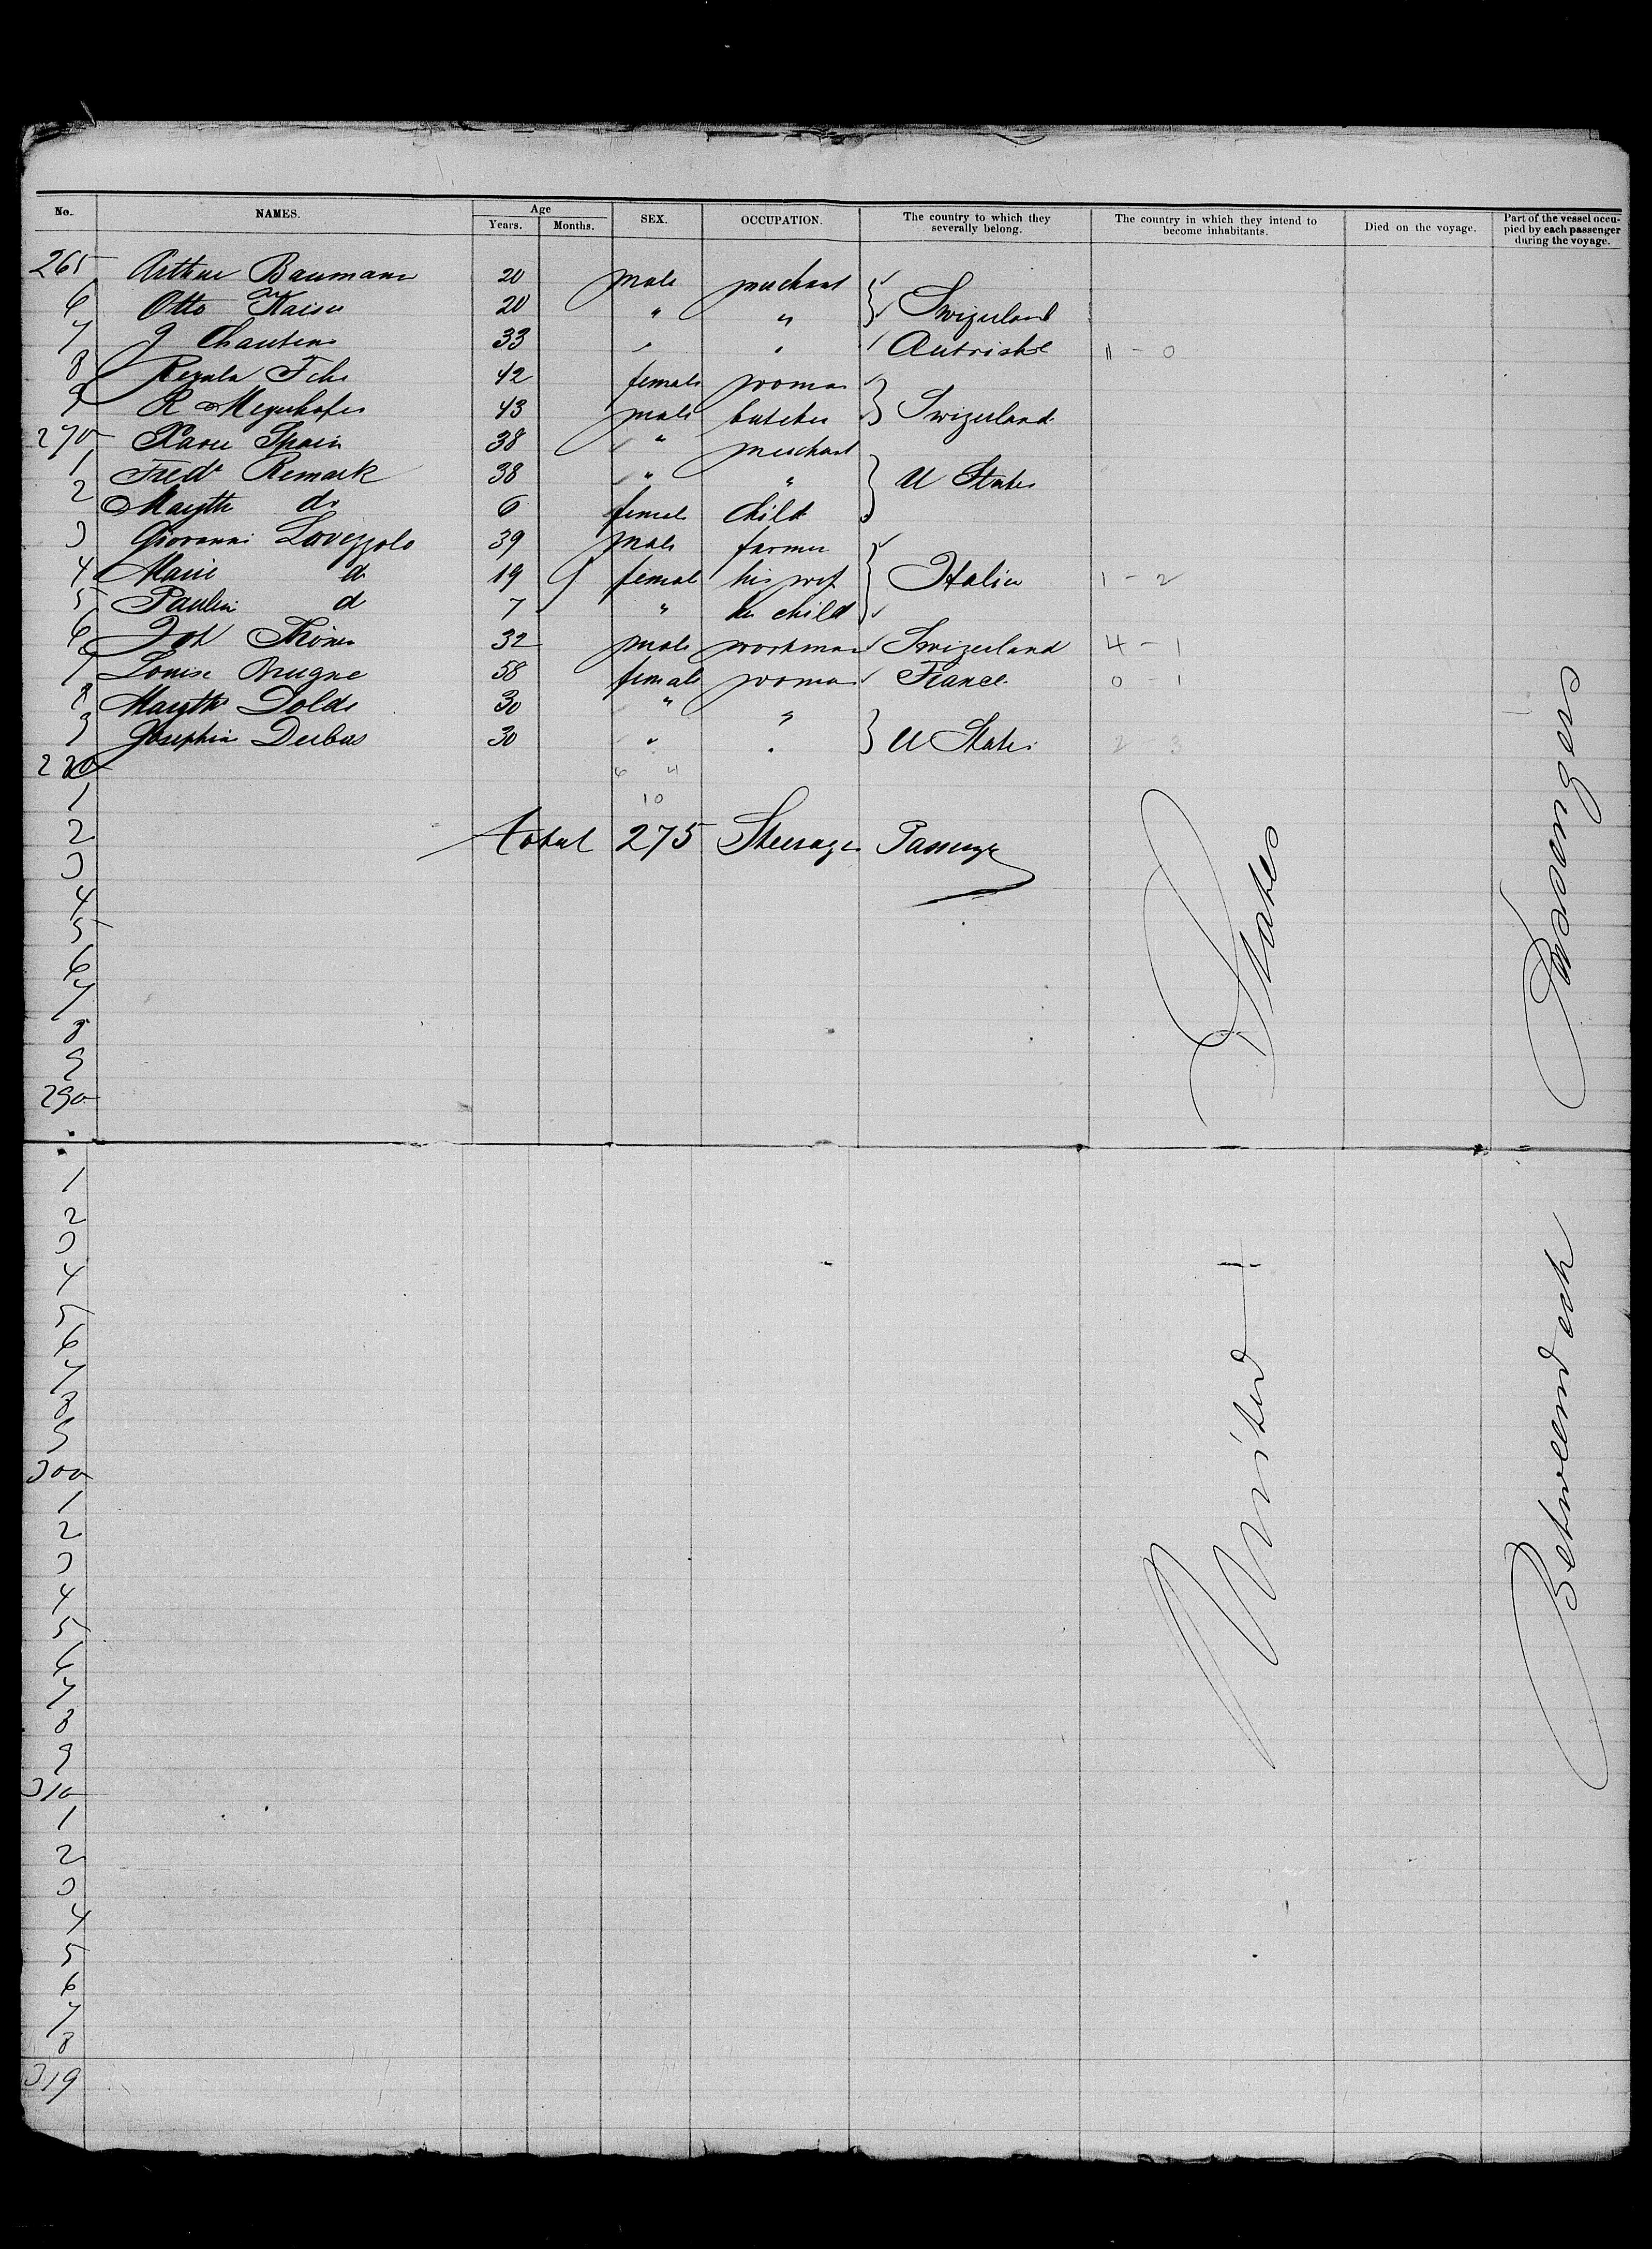 No. NAMES. Age Years. Months. SEX. OCCUPATION. The country to which they severally belong. The country in which they intend to become inhabitants. Died on the voyage. Part of the vessel occupied by each passenger during the voyage.
265 Arthur Baumann 20 male merchant
6 Otto Kaiser 20 " " } Swizerland
7 J 33 " "
8 Regula 42 female woman
9 R 43 male butcher } Swizerland
270 Spain 38 " merchant
1 Fredr Remark 38 " " } U States
2 Margth do 6 female child
3 Giovanni Lovezzolo 39 male farmer
4 Marie do 19 female his wif } Italia 1 - 2
5 Paulin do 7 " child
6 Joh 32 male workman Swizerland 4 - 1
7 Louise Brugne 58 female woman France 0 - 1
8 Margth Dolde 30 " "
9 Josephin Dubus 30 " " } U States 2 - 3
280 6 4
1 10
2 total 275 Steerage Passengr
3
4
5
6
7
8
9
290
1
2
3
4
5
6
7
8
9
300
1
2
3
4
5
6
7
8
9
310
1
2
3
4
5
6
7
8
319
United States
Betweendeck Passengers